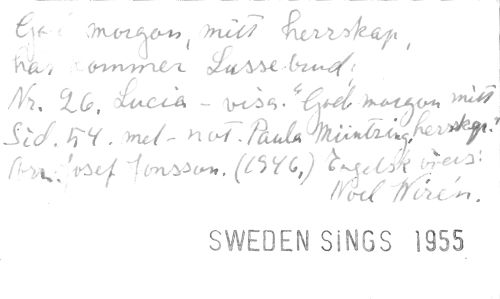 God morgon, mitt herrskap,
här kommer Lussebrud,
Nr. 26. Lucia-visa. "God morgon mitt
Sid. 54. mel-not. Paula Müntzing. herrskap."
Arr. Josef Jonsson. (1946,) Engelsk vers:
Noel Wirén.
SWEDEN SINGS 1955